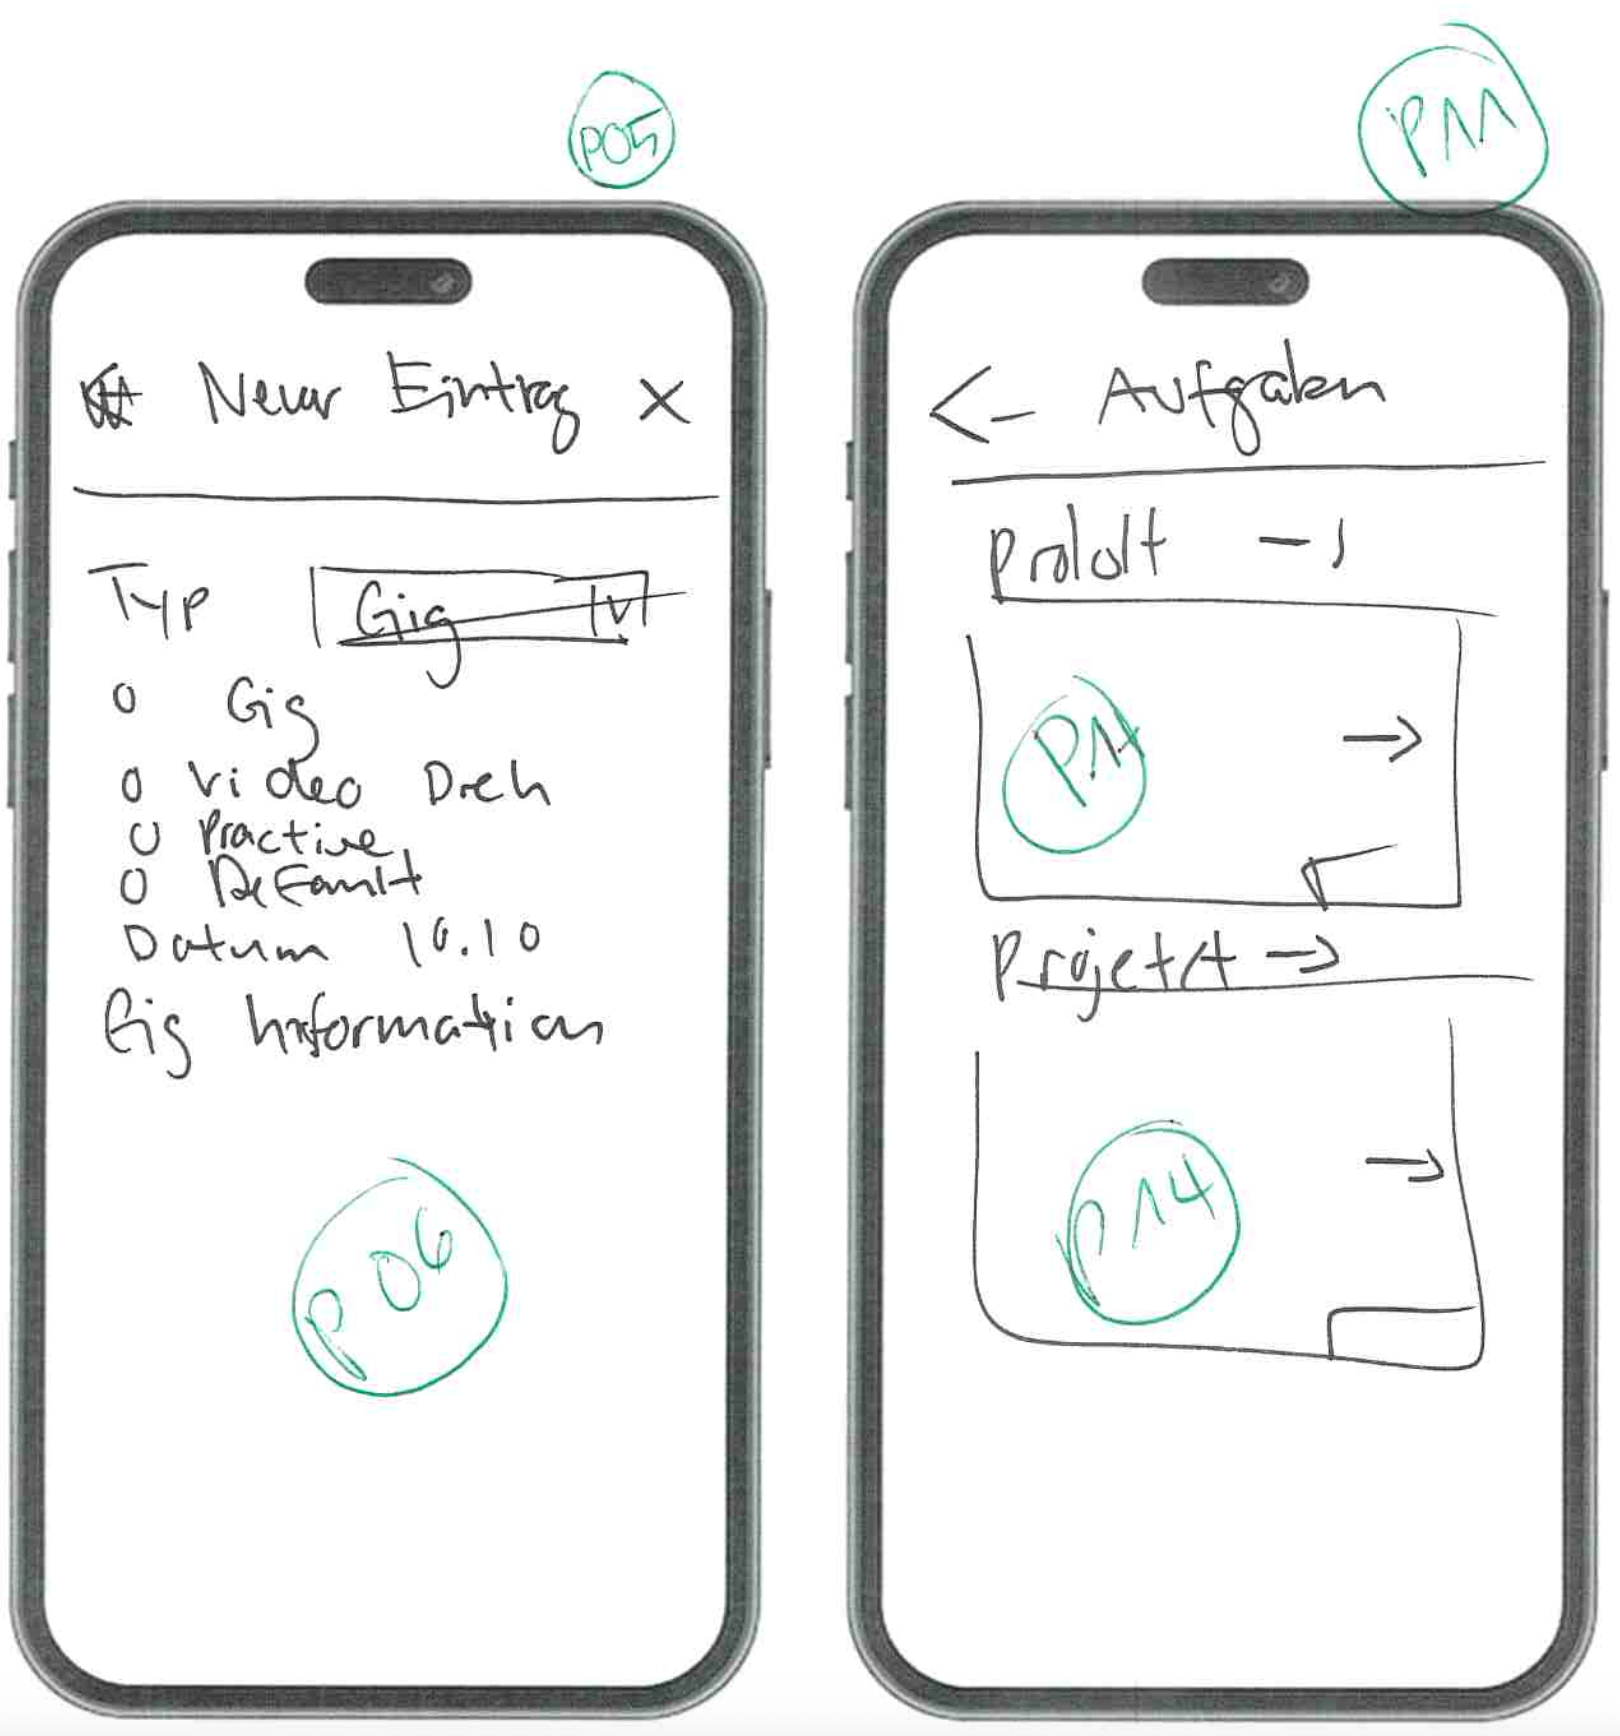 P05
Neuer Eintrag X
Typ Gig
O Gig
O Video Dreh
O Practive
O Default
Datum 10.10
Gig Information
P06
P11
<- Aufgaben
->
P14
->
Projekt ->
P14
->